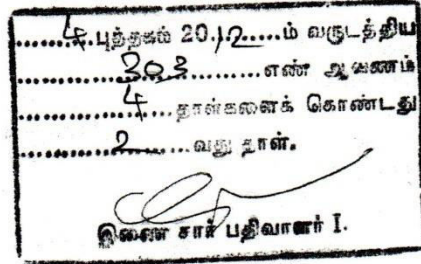 4 புத்தகம் 2012ம் வருடத்திய
303 எண் ஆவணம்
4 தாள்களைக் கொண்டது
2 வது தாள்.
இணை சார் பதிவாளர் I.